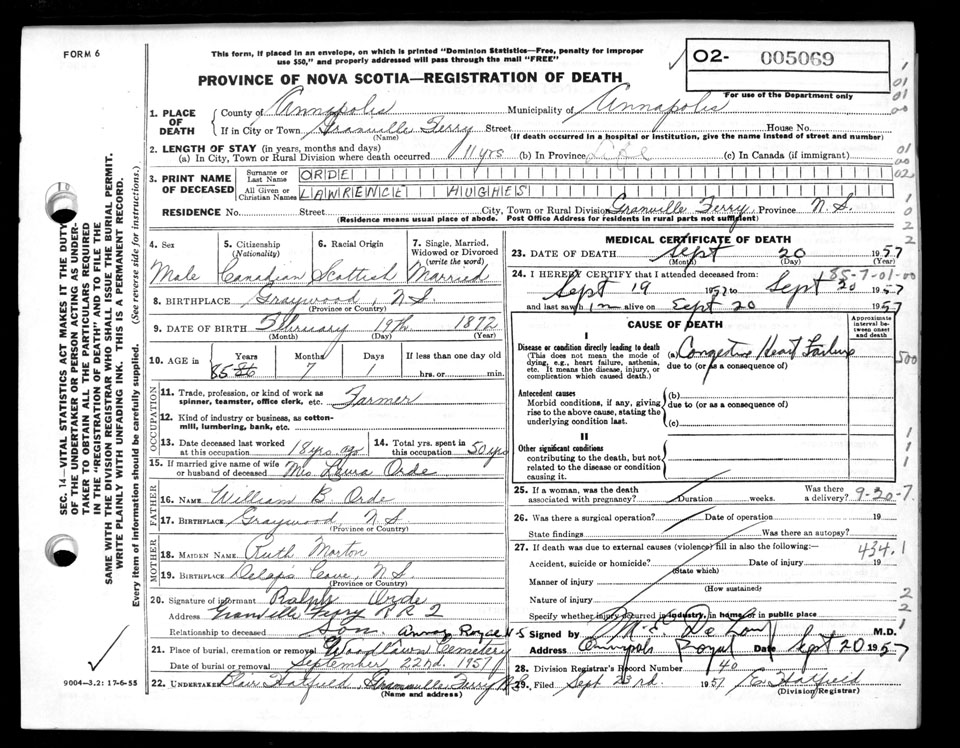 FORM 6
This form, if placed in an envelope, on which is printed "Dominion Statistics—Free, penalty for improper
use $50," and properly addressed will pass through the mail "FREE"
PROVINCE OF NOVA SCOTIA—REGISTRATION OF DEATH
02- 005069
For use of the Department only
1. PLACE OF DEATH County of Annapolis Municipality of Annapolis
If in City or Town Granville Ferry Street House No.
(Name) (If death occurred in a hospital or institution, give the name instead of street and number)
2. LENGTH OF STAY (in years, months and days)
(a) In City, Town or Rural Division where death occurred 11 yrs (b) In Province Life (c) In Canada (if immigrant)
3. PRINT NAME OF DECEASED Surname or Last Name ORDE
All Given or Christian Names LAWRENCE HUGHES
RESIDENCE No. Street City, Town or Rural Division Granville Ferry, Province N.S.
(Residence means usual place of abode. Post Office Address for residents in rural parts not sufficient)
4. Sex 5. Citizenship (Nationality) 6. Racial Origin 7. Single, Married, Widowed or Divorced (write the word)
Male Canadian Scottish Married
8. BIRTHPLACE Graywood, N.S.
(Province or Country)
9. DATE OF BIRTH February 19th 1872
(Month) (Day) (Year)
10. AGE in Years Months Days If less than one day old
85 86 7 1 hrs. or min.
OCCUPATION
11. Trade, profession, or kind of work as spinner, teamster, office clerk, etc. Farmer
12. Kind of industry or business, as cotton-mill, lumbering, bank, etc.
13. Date deceased last worked at this occupation 18 yrs. ago 14. Total yrs. spent in this occupation 50 yrs
15. If married give name of wife or husband of deceased Mrs Laura Orde
FATHER
16. NAME William B Orde
17. BIRTHPLACE Graywood N S
(Province or Country)
MOTHER
18. MAIDEN NAME Ruth Morton
19. BIRTHPLACE Delaps Cove, N.S.
(Province or Country)
20. Signature of informant Ralph Orde
Address Granville Ferry RR 2
Relationship to deceased Son. Annap Royal N-S
21. Place of burial, cremation or removal Woodlawn Cemetery
Date of burial or removal September 22nd. 1957
22. UNDERTAKER Blair Hatfield, Granville Ferry N.S.
(Name and address)
MEDICAL CERTIFICATE OF DEATH
23. DATE OF DEATH Sept 20 1957
(Month) (Day)
85-7-01-00
24. I HEREBY CERTIFY that I attended deceased from:
Sept 19 1957 to Sept 20 1957
and last saw him alive on Sept 20 1957
CAUSE OF DEATH
Approximate interval between onset and death
I
Disease or condition directly leading to death
(This does not mean the mode of dying, e.g., heart failure, asthenia, etc. It means the disease, injury, or complication which caused death.)
(a) Congestive Heart Failure
due to (or as a consequence of)
Antecedent causes
Morbid conditions, if any, giving rise to the above cause, stating the underlying condition last.
(b)
due to (or as a consequence of)
(c)
II
Other significant conditions
contributing to the death, but not related to the disease or condition causing it.
25. If a woman, was the death associated with pregnancy? Duration weeks. Was there a delivery? 9-20-7
26. Was there a surgical operation? Date of operation 19
State findings Was there an autopsy?
27. If death was due to external causes (violence) fill in also the following:— 434.1
Accident, suicide or homicide? Date of injury 19
(State which)
Manner of injury
(How sustained)
Nature of injury
Specify whether injury occurred in industry, in home or in public place
Signed by M.D.
Address Annapolis Royal Date Sept 20 1957
28. Division Registrar's Record Number 40
29. Filed Sept 23rd. 1957 E. Hatfield
(Division Registrar)
SEC. 14—VITAL STATISTICS ACT MAKES IT THE DUTY
OF THE UNDERTAKER OR PERSON ACTING AS UNDER-
TAKER TO OBTAIN ALL THE PARTICULARS REQUIRED
IN THE "REGISTRATION OF DEATH" AND TO FILE THE
SAME WITH THE DIVISION REGISTRAR WHO SHALL ISSUE THE BURIAL PERMIT.
WRITE PLAINLY WITH UNFADING INK. THIS IS A PERMANENT RECORD.
Every item of information should be carefully supplied. (See reverse side for instructions.)
9004—3.2: 17-6-55